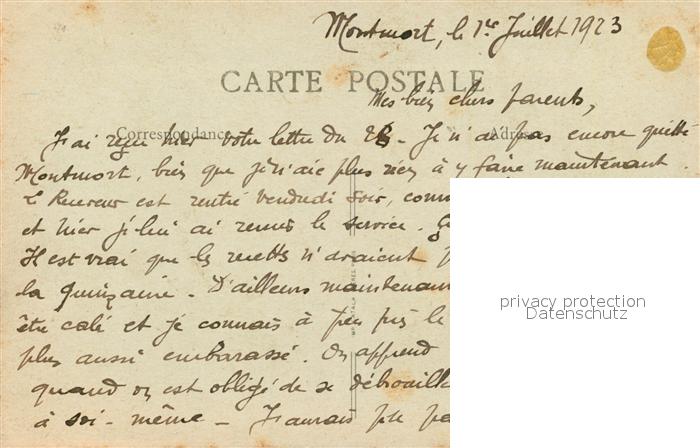 Montmort, le 1er Juillet 1923
CARTE POSTALE
Mes bien chers parents,
Correspondance
Adresse
J'ai reçu hier votre lettre du 28. Je n'ai pas encore quitté
Montmort, bien que je n'aie plus rien à y faire maintenant.
Le Receveur est rentré vendredi soir, comm
et hier je lui ai remis le service.
Il est vrai que les recettes n'avaient
la quinzaine. D'ailleurs maintenant
privacy protection
Datenschutz
être calé et je connais à peu près le
plus aussi embarassé. On apprend
quand on est obligé de se débrouille
à soi-même - J'aurais